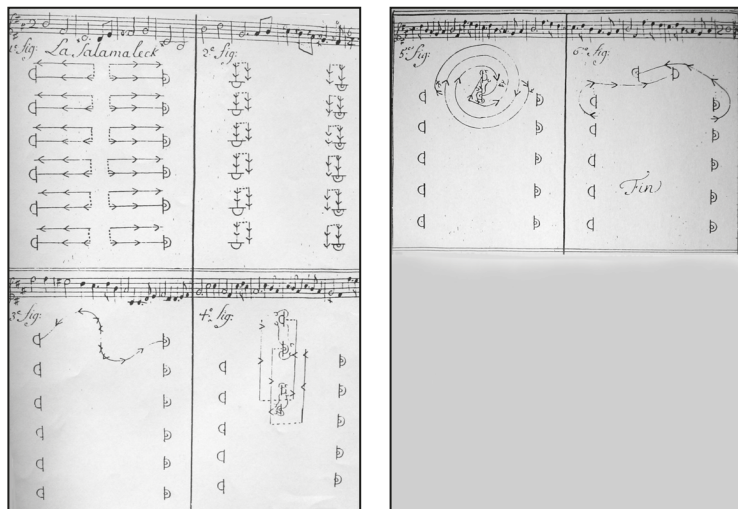 1.e fig: La Salamaleck
2.e fig:
3.e fig:
4.e fig:
5.me fig:
6.me fig:
Fin